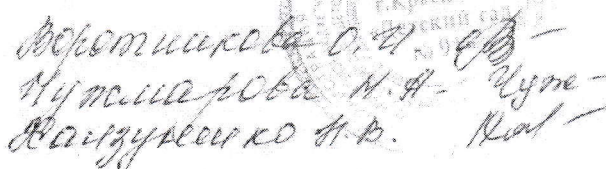 г. Крас
Детский сад
№ 9
Воротникова О. И
Чужмарова Н. А- Чуж-
Ханзуненко Н. В.